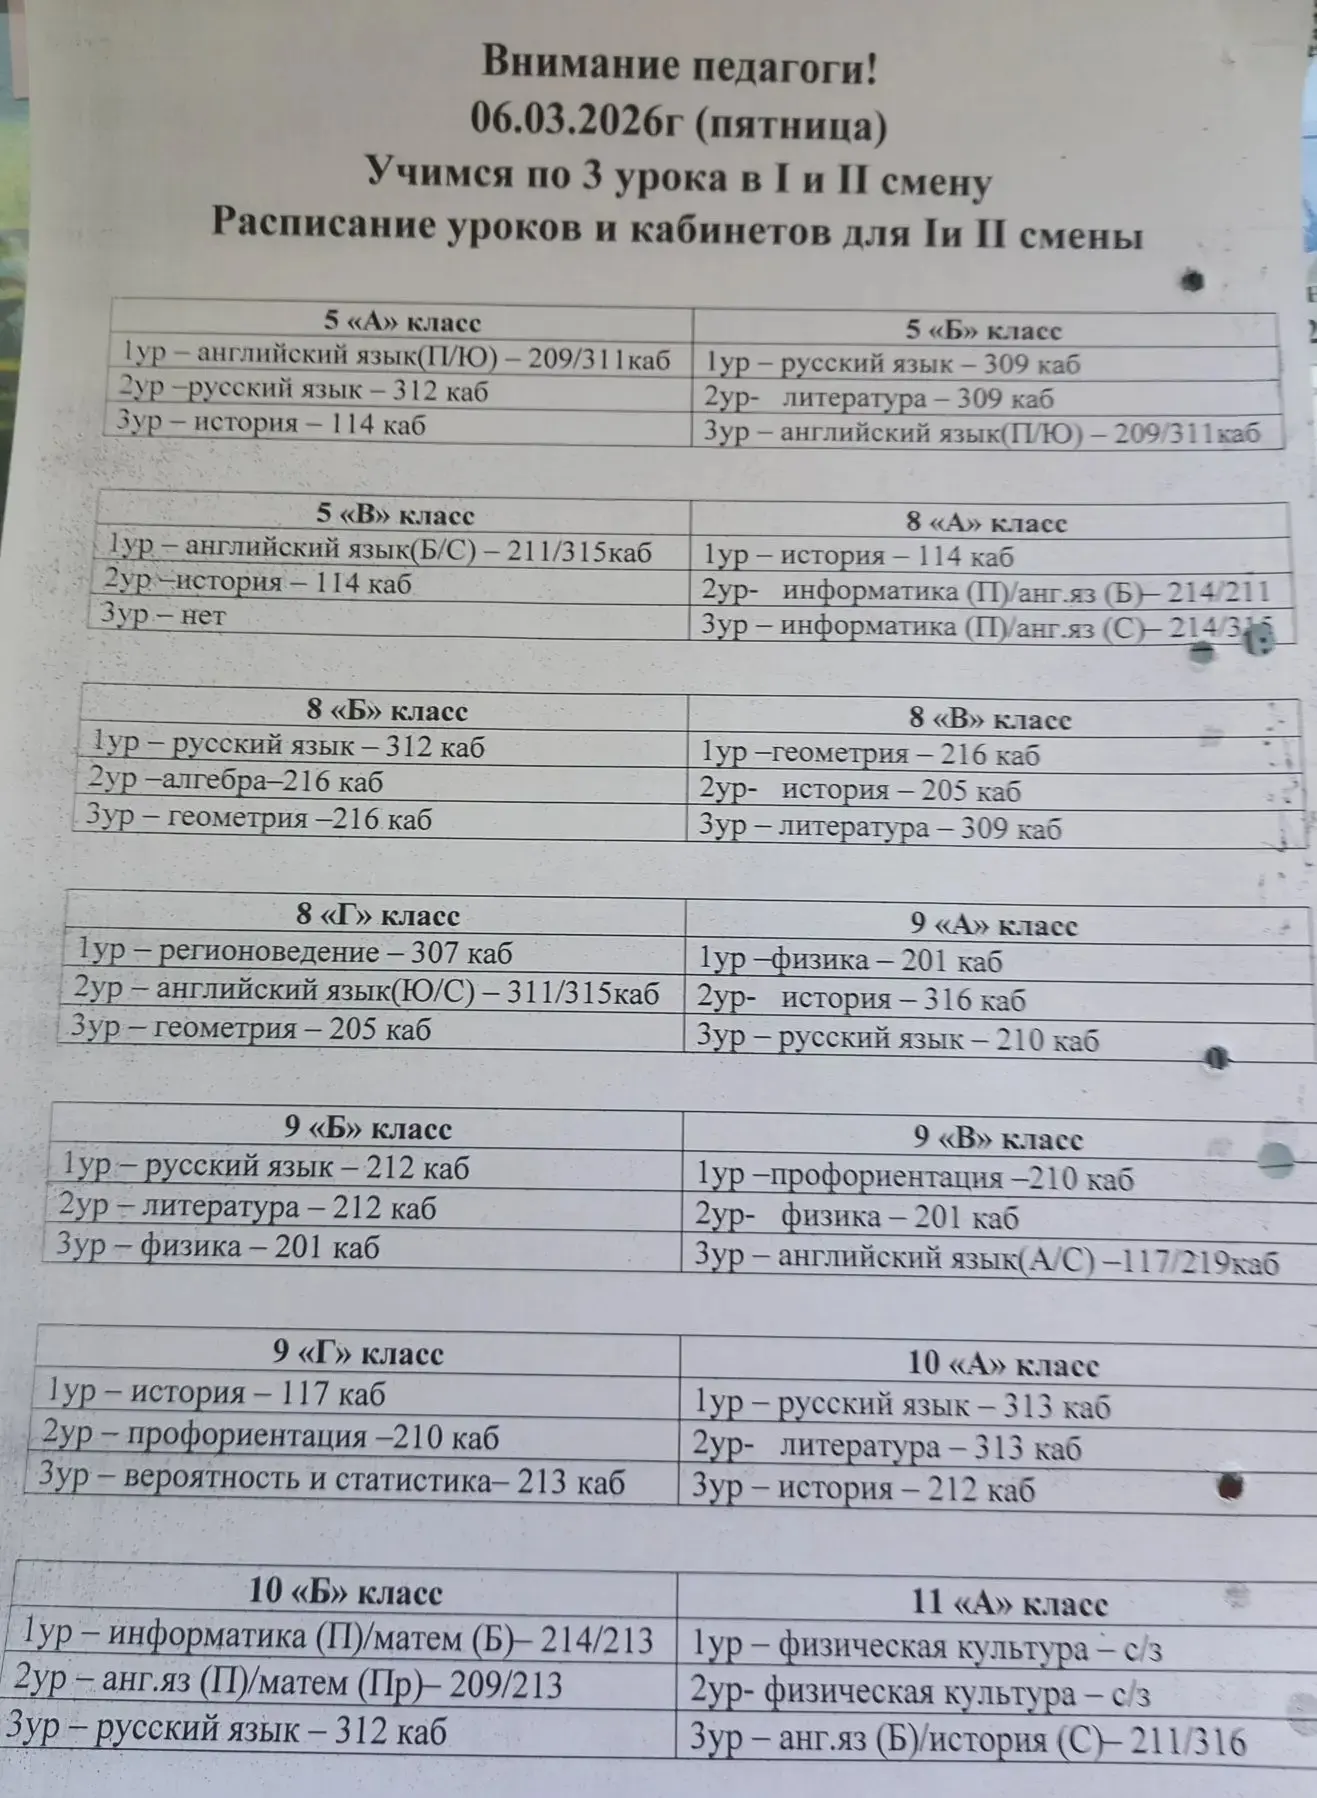 Внимание педагоги!
06.03.2026г (пятница)
Учимся по 3 урока в I и II смену
Расписание уроков и кабинетов для Iи II смены
5 «А» класс
1ур – английский язык(П/Ю) – 209/311каб
2ур –русский язык – 312 каб
3ур – история – 114 каб
5 «Б» класс
1ур – русский язык – 309 каб
2ур- литература – 309 каб
3ур – английский язык(П/Ю) – 209/311каб
5 «В» класс
1ур – английский язык(Б/С) – 211/315каб
2ур –история – 114 каб
3ур – нет
8 «А» класс
1ур – история – 114 каб
2ур- информатика (П)/анг.яз (Б)– 214/211
3ур – информатика (П)/анг.яз (С)– 214/315
8 «Б» класс
1ур – русский язык – 312 каб
2ур –алгебра–216 каб
3ур – геометрия –216 каб
8 «В» класс
1ур –геометрия – 216 каб
2ур- история – 205 каб
3ур – литература – 309 каб
8 «Г» класс
1ур – регионоведение – 307 каб
2ур – английский язык(Ю/С) – 311/315каб
3ур – геометрия – 205 каб
9 «А» класс
1ур –физика – 201 каб
2ур- история – 316 каб
3ур – русский язык – 210 каб
9 «Б» класс
1ур – русский язык – 212 каб
2ур – литература – 212 каб
3ур – физика – 201 каб
9 «В» класс
1ур –профориентация –210 каб
2ур- физика – 201 каб
3ур – английский язык(А/С) –117/219каб
9 «Г» класс
1ур – история – 117 каб
2ур – профориентация –210 каб
3ур – вероятность и статистика– 213 каб
10 «А» класс
1ур – русский язык – 313 каб
2ур- литература – 313 каб
3ур – история – 212 каб
10 «Б» класс
1ур – информатика (П)/матем (Б)– 214/213
2ур – анг.яз (П)/матем (Пр)– 209/213
3ур – русский язык – 312 каб
11 «А» класс
1ур – физическая культура – с/з
2ур- физическая культура – с/з
3ур – анг.яз (Б)/история (С)– 211/316